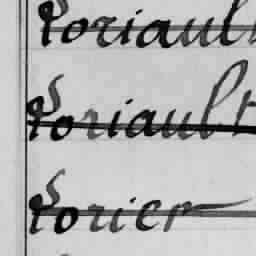 Loriault
Loriault
Lorier